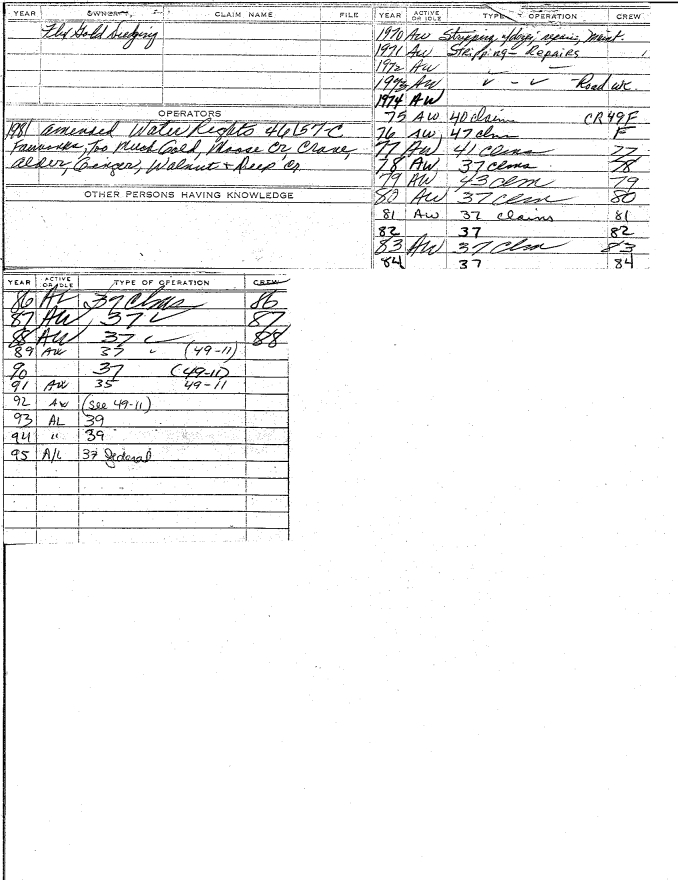 YEAR OWNER CLAIM NAME FILE
Gold Dredging
OPERATORS
1981 amended Water Rights 46157-C
Fairbanks, Too Much Gold, Moose Cr Crane,
Alder, Ginger, Walnut + Deep Cr.
OTHER PERSONS HAVING KNOWLEDGE
YEAR ACTIVE OR IDLE TYPE OPERATION CREW
1970 AW Stripping repairs, Maint.
1971 AW Stripping - Repairs 1
1972 AW —
1973 AW ✓ - ✓ Road wk.
1974 AW
75 AW 40 claim CR49F
76 AW 47 clm F
77 AW 41 clms 77
78 AW 37 clms 78
79 AW 43 clm 79
80 AW 37 clm 80
81 AW 37 claims 81
82 37 82
83 AW 37 clm 83
84 37 84
YEAR ACTIVE OR IDLE TYPE OF OPERATION CREW
86 AL 37 clms 86
87 AW 37 ✓ 87
88 AW 37 ✓ 88
89 AW 37 " (49-11)
90 37 (49-11)
91 AW 35 49-11
92 AW (See 49-11)
93 AL 39
94 " 39
95 A/L 37 federal